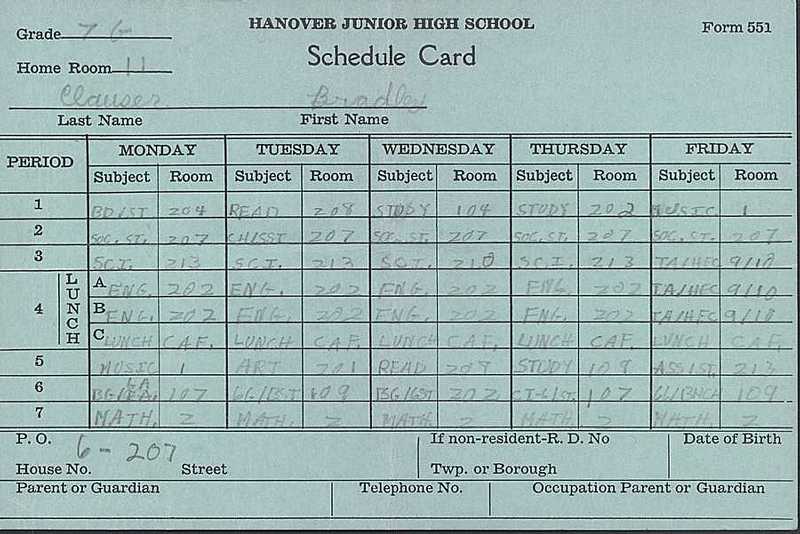 HANOVER JUNIOR HIGH SCHOOL
Form 551
Grade 7 G
Schedule Card
Home Room 11
Clauser Bradley
Last Name First Name
PERIOD MONDAY TUESDAY WEDNESDAY THURSDAY FRIDAY
Subject Room Subject Room Subject Room Subject Room Subject Room
1 BD/ST 204 READ 208 STUDY 104 STUDY 202 MUSIC 1
2 SOC. ST. 207 207 SOC. ST. 207 SOC. ST. 207 SOC. ST. 207
3 SCI. 213 SCI. 213 SCI. 210 SCI. 213 IA/HEC 9/10
4 LUNCH A ENG. 202 ENG. 202 ENG. 202 ENG. 202 IA/HEC 9/10
B ENG. 202 ENG. 202 ENG. 202 ENG. 202 IA/HEC 9/10
C LUNCH CAF. LUNCH CAF. LUNCH CAF. LUNCH CAF. LUNCH CAF.
5 MUSIC 1 ART 201 READ 208 STUDY 108 ASSIST. 213
6 107 109 202 107 109
7 MATH. 2 MATH. 2 MATH. 2 MATH. 2 MATH. 2
P. O. If non-resident-R. D. No Date of Birth
6 - 207
House No. Street Twp. or Borough
Parent or Guardian Telephone No. Occupation Parent or Guardian